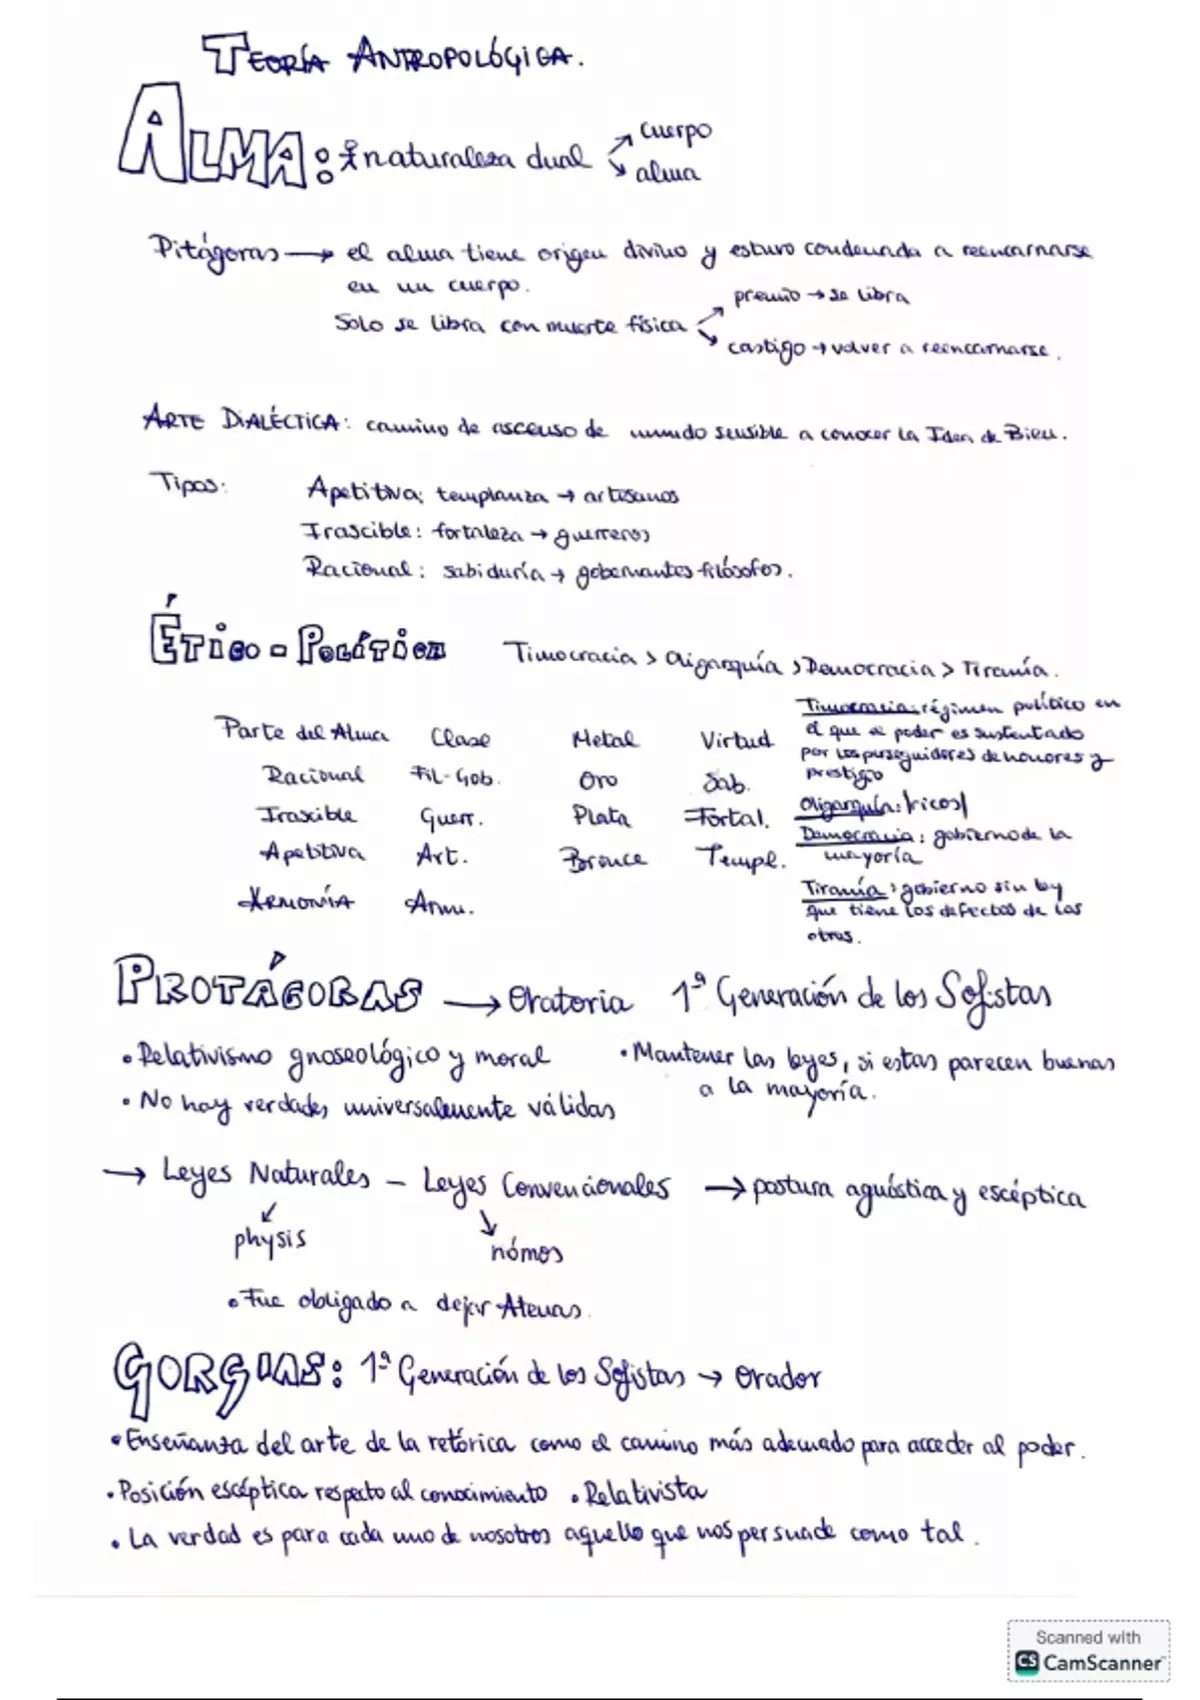 TEORÍA ANTROPOLÓGICA.
ALMA: naturaleza dual → cuerpo
→ alma
Pitágoras → el alma tiene origen divino y estuvo condenada a reencarnarse
en un cuerpo.
Solo se libra con muerte física → premio → se libra
→ castigo → volver a reencarnarse.
ARTE DIALÉCTICA: camino de ascenso de mundo sensible a conocer la Idea de Bien.
Tipos: Apetitiva: templanza → artesanos
Irascible: fortaleza → guerreros
Racional: sabiduría → gobernantes filósofos.
ÉTICO-POLÍTICA Timocracia > Oligarquía > Democracia > Tiranía.
Parte del Alma Clase Metal Virtud
Racional Fil-Gob. Oro Sab.
Irascible Guerr. Plata Fortal.
Apetitiva Art. Bronce Templ.
ARMONÍA Arm.
Timocracia: régimen político en
el que el poder es sustentado
por los perseguidores de honores y
prestigio
Oligarquía: /ricos/
Democracia: gobierno de la
mayoría
Tiranía: gobierno sin ley
que tiene los defectos de las
otras.
PROTÁGORAS → Oratoria 1ª Generación de los Sofistas
• Relativismo gnoseológico y moral
• No hay verdades universalmente válidas
• Mantener las leyes, si estas parecen buenas
a la mayoría.
→ Leyes Naturales - Leyes Convencionales → postura agnóstica y escéptica
physis nómos
• Fue obligado a dejar Atenas.
GORGIAS: 1ª Generación de los Sofistas → Orador
• Enseñanza del arte de la retórica como el camino más adecuado para acceder al poder.
• Posición escéptica respecto al conocimiento • Relativista
• La verdad es para cada uno de nosotros aquello que nos persuade como tal.
Scanned with
CS CamScanner